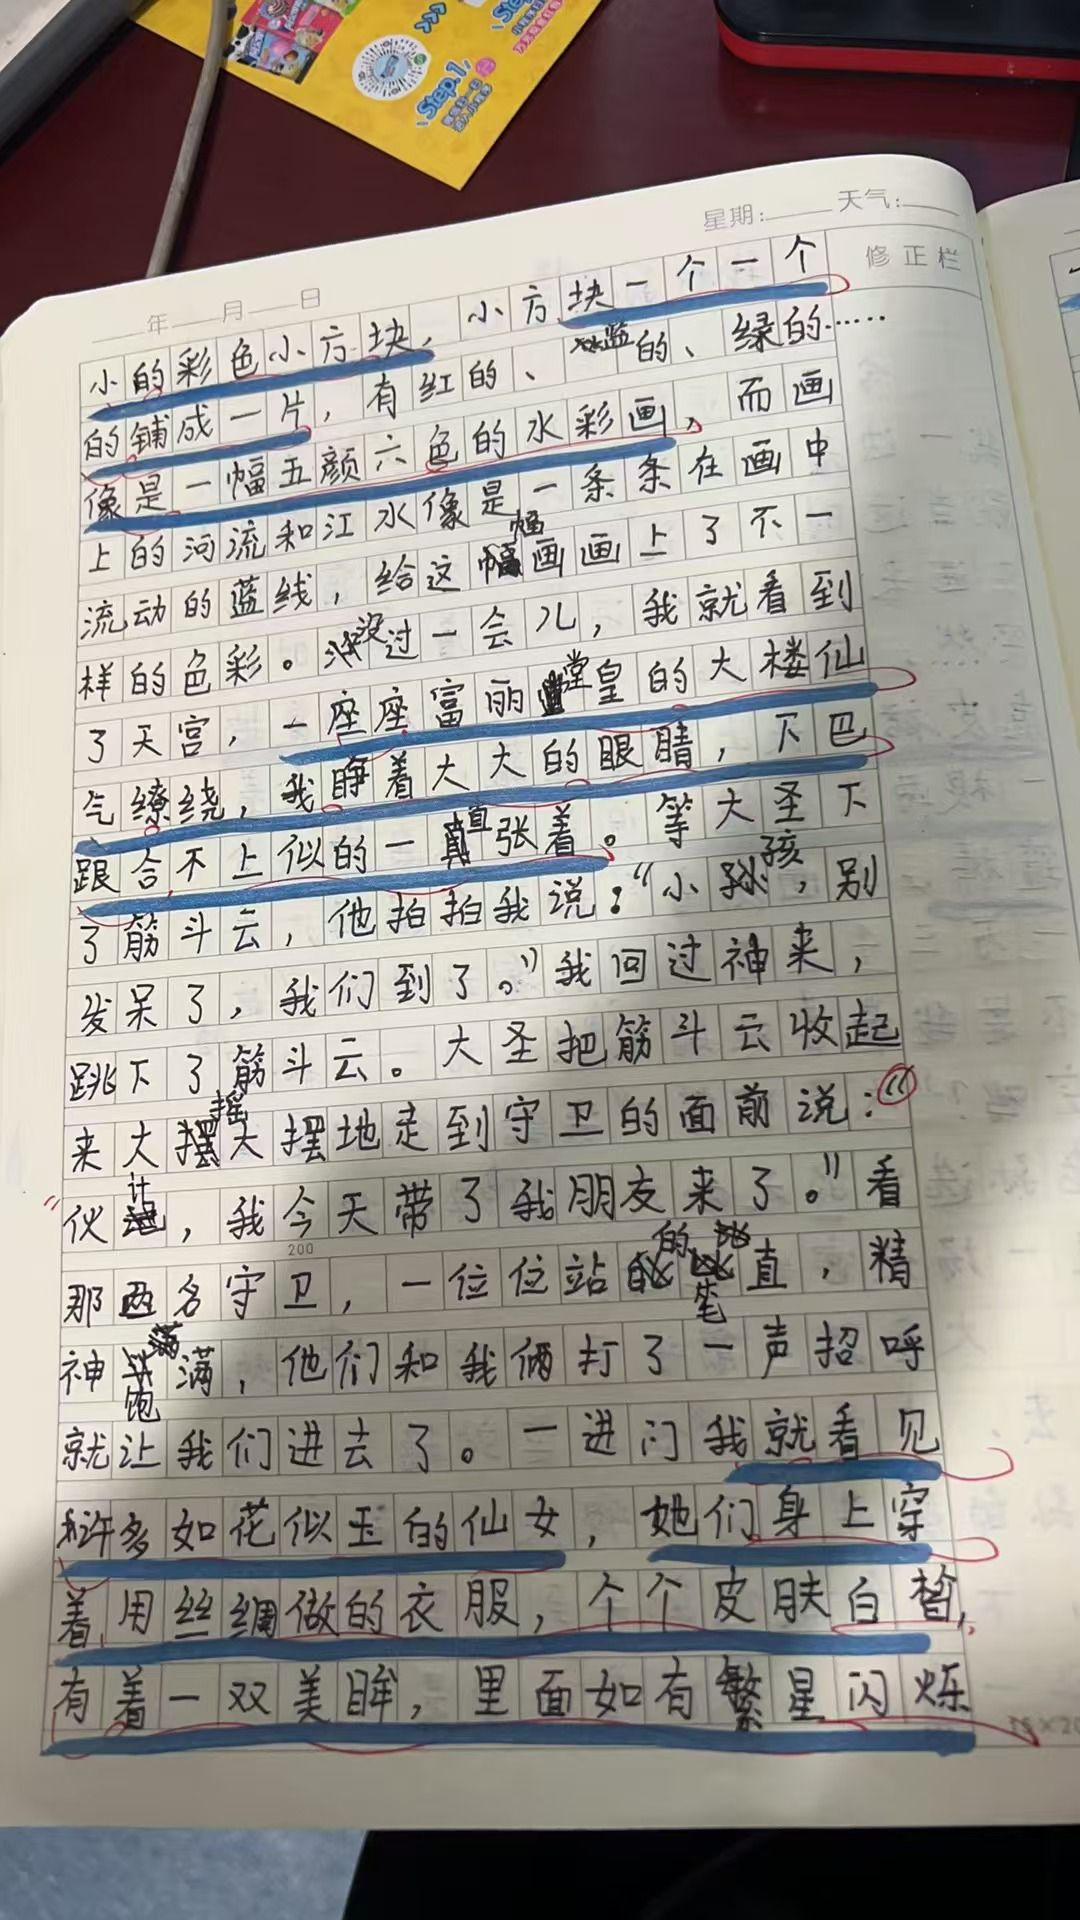 Step.1
星期: 天气:
年 月 日
修正栏
小的彩色小方块，小方块一个一个
的铺成一片，有红的、蓝的、绿的……
像是一幅五颜六色的水彩画，而画
上的河流和江水像是一条条在画中
流动的蓝线，给这幅画画上了不一
样的色彩。没过一会儿，我就看到
了天宫，一座座富丽堂皇的大楼仙
气缭绕，我睁着大大的眼睛，下巴
跟合不上似的一直张着。等大圣下
了筋斗云，他拍拍我说："小孩，别
发呆了，我们到了。"我回过神来，
跳下了筋斗云。大圣把筋斗云收起
来大摇大摆地走到守卫的面前说："
伙计，我今天带了我朋友来了。"看
那两名守卫，一位位站的笔直，精
200
神饱满，他们和我俩打了一声招呼
就让我们进去了。一进门我就看见
许多如花似玉的仙女，她们身上穿
着用丝绸做的衣服，个个皮肤白皙，
有着一双美眸，里面如有繁星闪烁